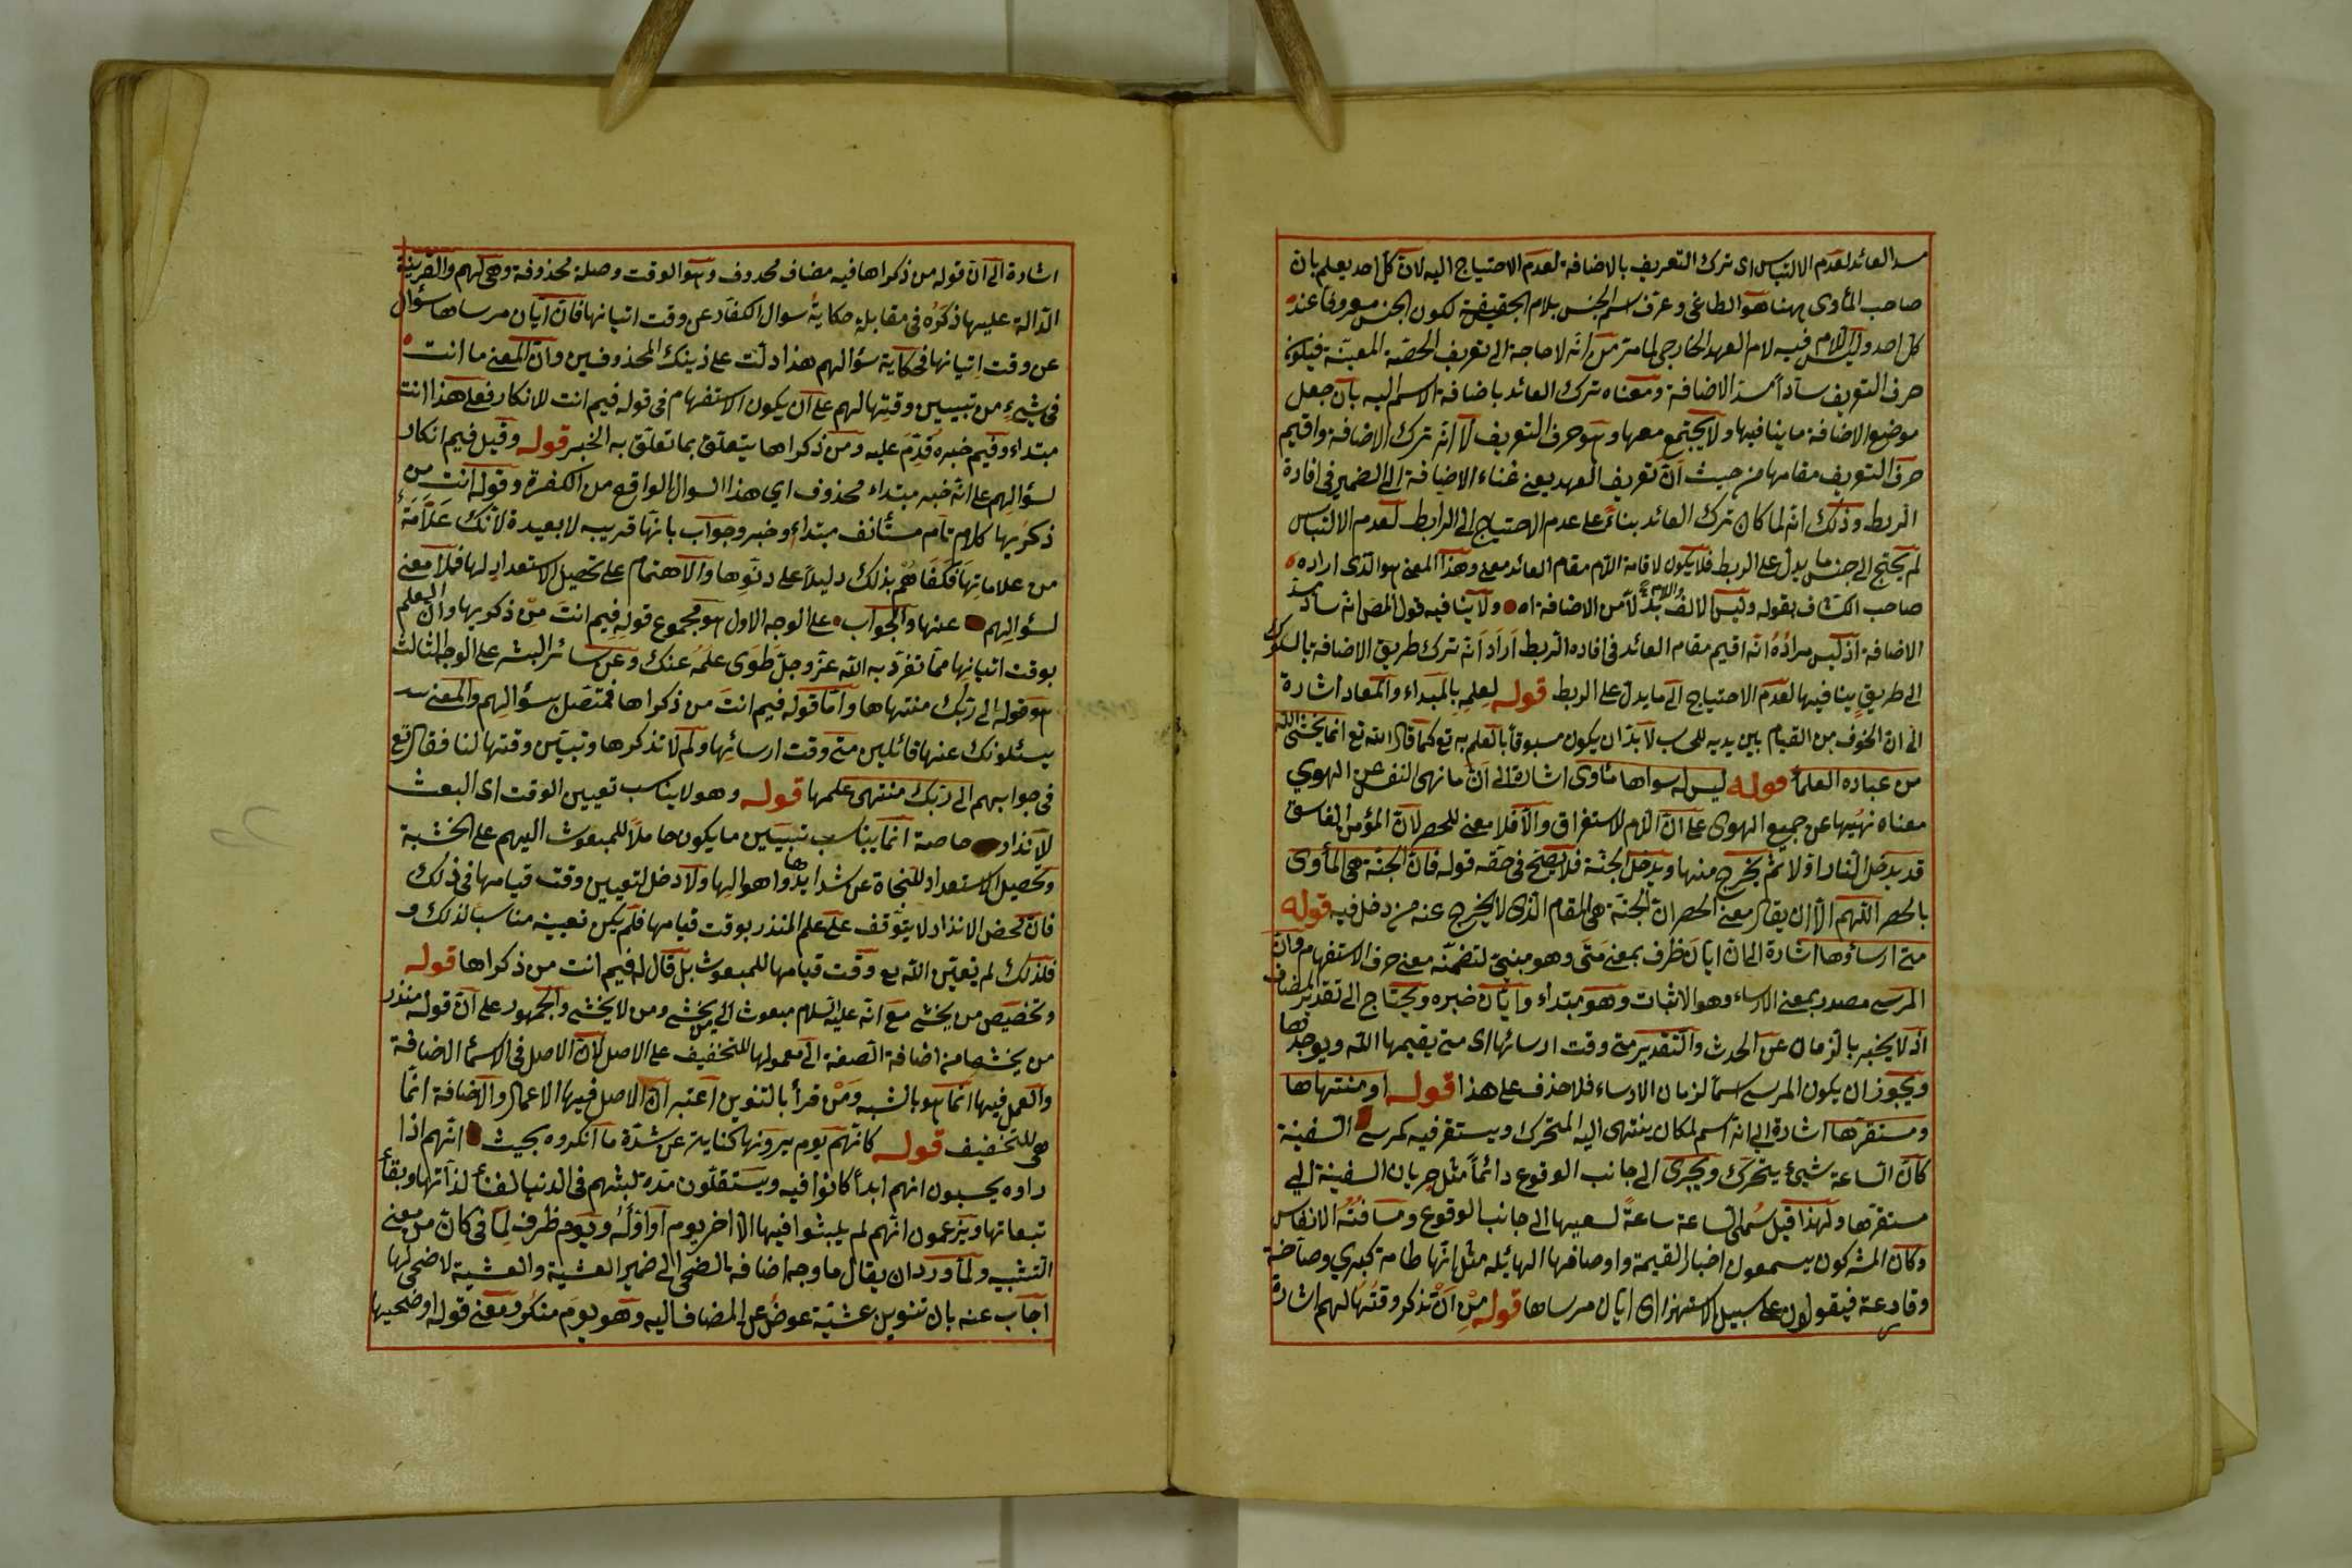 مسد العائد لعدم الالتباس اى ترك التعريف بالاضافة لعدم الاحتياج اليه لان كل احد يعلم بان
صاحب المأوى ههنا هو الطاغى وعرف اسم الجنس بلام الحقيقة لكون الجنس معروفا عند
كل احد وليس اللام فيه لام العهد الخارجى لما مر من انه لا حاجة الى تعريف الحصة المعينة فيكون
حرف التعريف سادا مسد الاضافة ومعناه ترك العائد باضافة الاسم اليه بان جعل
موضع الاضافة ما ينافيها ولا يجتمع معها وهو حرف التعريف لا انه ترك الاضافة واقيم
حرف التعريف مقامها من حيث ان تعريف العهد يغنى غناء الاضافة الى الضمير فى افادة
الربط وذلك انه لما كان ترك العائد بناء على عدم الاحتياج الى الرابط لعدم الالتباس
لم يحتج الى جنس ما يدل على الربط فلا يكون لاقامة اللام مقام العائد معنى وهذا المعنى هو الذى اراده
صاحب الكشاف بقوله وليس الالف واللام بدلا من الاضافة اه ولا ينافيه قول المص انه ساد مسد
الاضافة اذ ليس مراده انه اقيم مقام العائد فى افاده الربط اراد انه ترك طريق الاضافة بالسلوك
الى طريق ينافيها لعدم الاحتياج الى ما يدل على الربط قوله لعلمه بالمبداء والمعاد اشارة
الى ان الخوف من القيام بين يديه للحساب لا بد ان يكون مسبوقا بالعلم به تع كما قال الله تع انما يخشى الله
من عباده العلماء قوله ليس له سواها مأوى اشارة الى ان ما نهى النفس عن الهوى
معناه نهيها عن جميع الهوى على ان اللام للاستغراق والا فلا معنى للحصر لان المؤمن الفاسق
قد يدخل النار اولا ثم يخرج منها ويدخل الجنة فلا يصح فى حقه قوله فان الجنة هى المأوى
بالحصر اللهم الا ان يقال معنى الحصر ان الجنة هى المقام الذى لا يخرج عنه من دخل فيه قوله
متى ارساؤها اشارة الى ان ايان ظرف بمعنى متى وهو مبنى لتضمنه معنى حرف الاستفهام وان
المرسى مصدر بمعنى الارساء وهو الاثبات وهو مبتداء وايان خبره ويحتاج الى تقدير المضاف
اذ لا يخبر بالزمان عن الحدث والتقدير متى وقت ارسائها اى متى يقيمها الله ويوجدها
ويجوز ان يكون المرسى اسما لزمان الارساء فلا حذف على هذا قوله او منتهاها
ومستقرها اشارة الى انه اسم لمكان ينتهى اليه المتحرك ويستقر فيه كمرسى السفينة
كان الساعة شئ يتحرك ويجرى الى جانب الوقوع دائما مثل جريان السفينة الى
مستقرها ولهذا قيل سمى الساعة ساعة لسعيها الى جانب الوقوع ومسافته الانفاس
وكان المشركون يسمعون اخبار القيمة واوصافها الهائله مثل انها طامة كبرى وصاخة
وقارعة فيقولون على سبيل الاستهزاء اى ايان مرساها قوله من ان تذكر وقتها لهم اشارة
اشارة الى ان قوله من ذكراها فيه مضاف محذوف وهو الوقت وصلة محذوفة وهى لهم والقرينة
الدالة عليها ذكره فى مقابلة حكاية سوال الكفار عن وقت اتيانها فان ايان مرساها سؤال
عن وقت اتيانها فحكاية سؤالهم هذا دلت على ذينك المحذوفين وان المعنى ما انت
فى شئ من تبيين وقتها لهم على ان يكون الاستفهام فى قوله فيم انت للانكار فعلى هذا انت
مبتداء وفيم خبره قدم عليه ومن ذكراها يتعلق بما تعلق به الخبر قوله وقيل فيم انكار
لسؤالهم على انه خبر مبتداء محذوف اى هذا السوال الواقع من الكفرة وقوله انت من
ذكريها كلام تام مستأنف مبتداء وخبر وجواب بانها قريبه لا بعيدة لانك علامة
من علاماتها فكفاهم بذلك دليلا على دنوها والاهتمام على تحصيل الاستعداد لها فلا معنى
لسؤالهم عنها والجواب على الوجه الاول هو مجموع قوله فيم انت من ذكريها وان العلم
بوقت اتيانها مما تفرد به الله عز وجل طوى علمه عنك وعن سائر البشر على الوجه الثالث
هو قوله الى ربك منتهاها واما قوله فيم انت من ذكراها فمتصل بسؤالهم والمعنى
يسئلونك عنها قائلين متى وقت ارسائها ولم لا تذكرها وتبين وقتها لنا فقال تع
فى جوابهم الى ربك منتهى علمها قوله وهو لا يناسب تعيين الوقت اى البعث
للانذار خاصة انما يناسب تبيين ما يكون حاملا للمبعوث اليهم على الخشية
وتحصيل الاستعداد للنجاة عن شدايدها واهوالها ولا دخل لتعيين وقت قيامها فى ذلك
فان محض الانذار لا يتوقف على علم المنذر بوقت قيامها فلم يكن تعيينه مناسبا لذلك و
فلذلك لم يعين الله تع وقت قيامها للمبعوث بل قال له فيم انت من ذكراها قوله
وتخصيص من يخشى مع انه عليه السلام مبعوث الى من يخشى ومن لا يخشى والجمهور على ان قوله منذر
من يخشها من اضافة الصفة الى معمولها للتخفيف على الاصل لان الاصل فى الاسماء الاضافة
والعمل فيها انما هو بالشبه ومن قرأ بالتنوين اعتبر ان الاصل فيها الاعمال والاضافة انما
هى للتخفيف قوله كانهم يوم يرونها كناية عن شدة ما انكروه بحيث انهم اذا
راوه يحسبون انهم ابدا كانوا فيه ويستقلون مدة لبثهم فى الدنيا لفناء لذاتها وبقاء
تبعاتها ويزعمون انهم لم يلبثوا فيها الا اخر يوم او اوله ويوم ظرف لما فى كان من معنى
التشبيه ولما ورد ان يقال ما وجه اضافة الضحى الى ضمير العشية والعشية لا ضحى لها
اجاب عنه بان تنوين عشية عوض عن المضاف اليه وهو يوم منكر ومعنى قوله او ضحيها